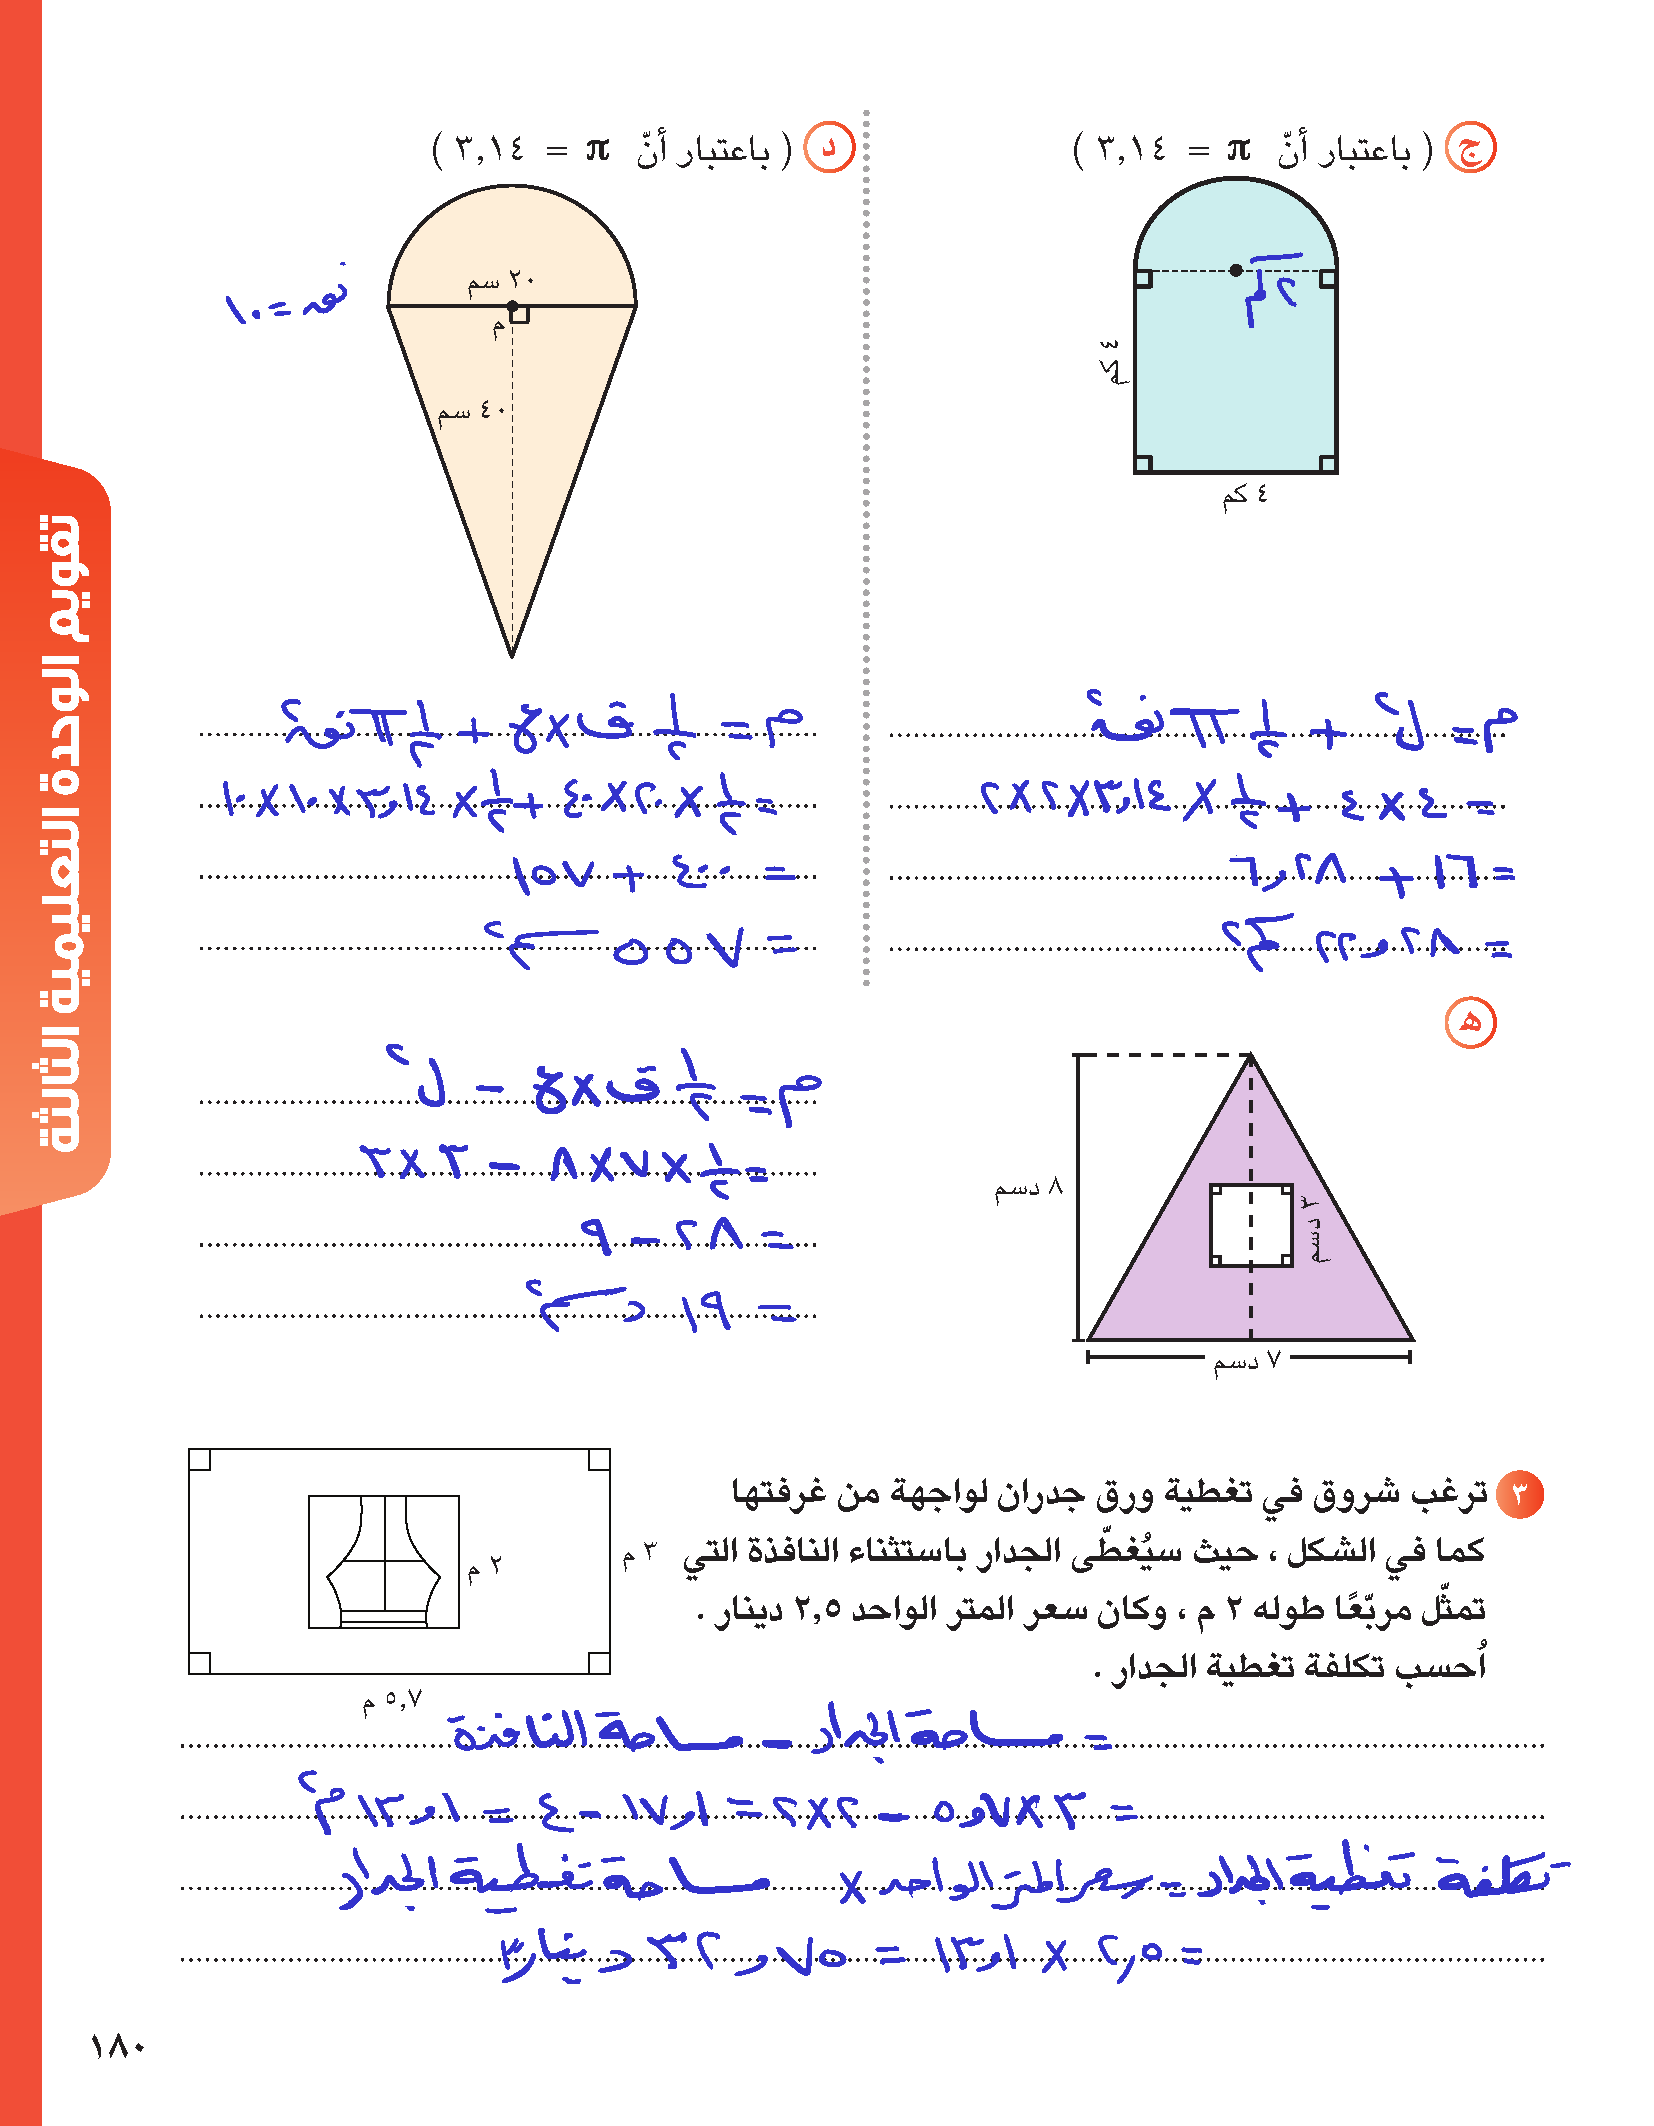 ج ( باعتبار أنّ π = ٣,١٤ )
٢ كم
٤ كم
٤ كم
م = ل٢ + ١/٢ π نق٢
= ٤ × ٤ + ١/٢ × ٣,١٤ × ٢ × ٢
= ١٦ + ٦,٢٨
= ٢٢,٢٨ كم٢
د ( باعتبار أنّ π = ٣,١٤ )
٢٠ سم
نق = ١٠
م
٤٠ سم
م = ١/٢ ق × ع + ١/٢ π نق٢
= ١/٢ × ٢٠ × ٤٠ + ١/٢ × ٣,١٤ × ١٠ × ١٠
= ٤٠٠ + ١٥٧
= ٥٥٧ سم٢
ه
٨ دسم
٣ دسم
٧ دسم
م = ١/٢ ق × ع − ل٢
= ١/٢ × ٧ × ٨ − ٣ × ٣
= ٢٨ − ٩
= ١٩ دسم٢
٣ ترغب شروق في تغطية ورق جدران لواجهة من غرفتها
كما في الشكل ، حيث سيُغطّى الجدار باستثناء النافذة التي
تمثّل مربّعًا طوله ٢ م ، وكان سعر المتر الواحد ٢,٥ دينار .
اُحسب تكلفة تغطية الجدار .
٣ م
٢ م
٥,٧ م
= مساحة الجدار − مساحة النافذة
= ٣ × ٥,٧ − ٢ × ٢ = ١٧,١ − ٤ = ١٣,١ م٢
تكلفة تغطية الجدار = سعر المتر الواحد × مساحة تغطية الجدار
= ٢,٥ × ١٣,١ = ٣٢,٧٥ دينار
تقويم الوحدة التعليمية الثالثة
١٨٠